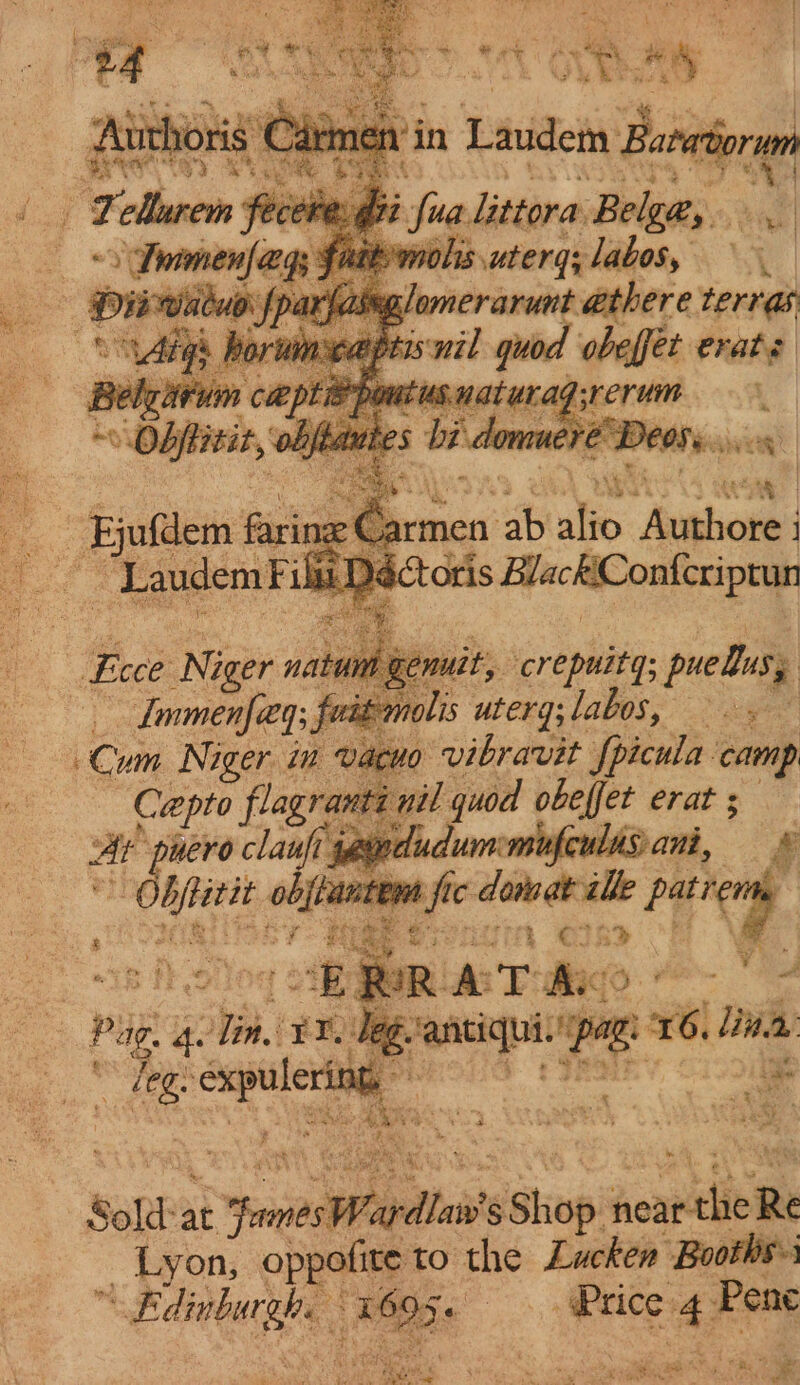 24
Authoris Carmen in Laudem Batavorum
Tellurem fecere dii ſua littora Belgæ,
Immenſæq; fuit molis uterq; labos,
Dii vacuo ſparſas glomerarunt æthere terras
Atq; horum cæptis nil quod obeſſet erat:
Belgarum cæptis pontus naturaq; rerum
Obſtitit, obſtantes hi domuere Deos.
Ejuſdem farinæ Carmen ab alio Authore i
Laudem Filii Dáctoris Black Conſcriptun
Ecce Niger natum genuit, crepuitq; puellus,
Immenſæq; fuit molis uterq; labos,
Cum Niger in vacuo vibravit ſpicula camp
Cæpto flagranti nil quod obeſſet erat ;
At puero clauſi jamdudum muſculus ani,
Obſtitit obſtantem ſic domat ille patrem.
ERRATA.
Pag. 4. lin. 11. leg. antiqui. pag. 16. lin.2
leg. expulerint.
Sold at James Wardlaw's Shop near the Re
Lyon, oppoſite to the Lucken Booths i
Edinburgh. 1695. Price 4 Penc